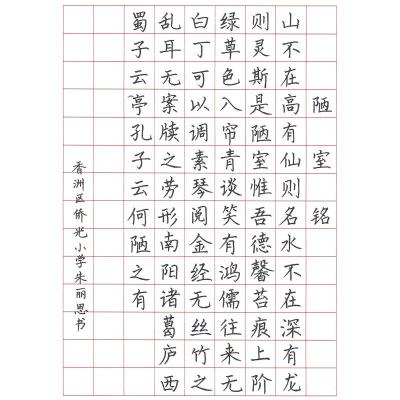 陋室铭
山不在高有仙则名水不在深有龙
则灵斯是陋室惟吾德馨苔痕上阶
绿草色入帘青谈笑有鸿儒往来无
白丁可以调素琴阅金经无丝竹之
乱耳无案牍之劳形南阳诸葛庐西
蜀子云亭孔子云何陋之有
香洲区侨光小学朱丽恩书